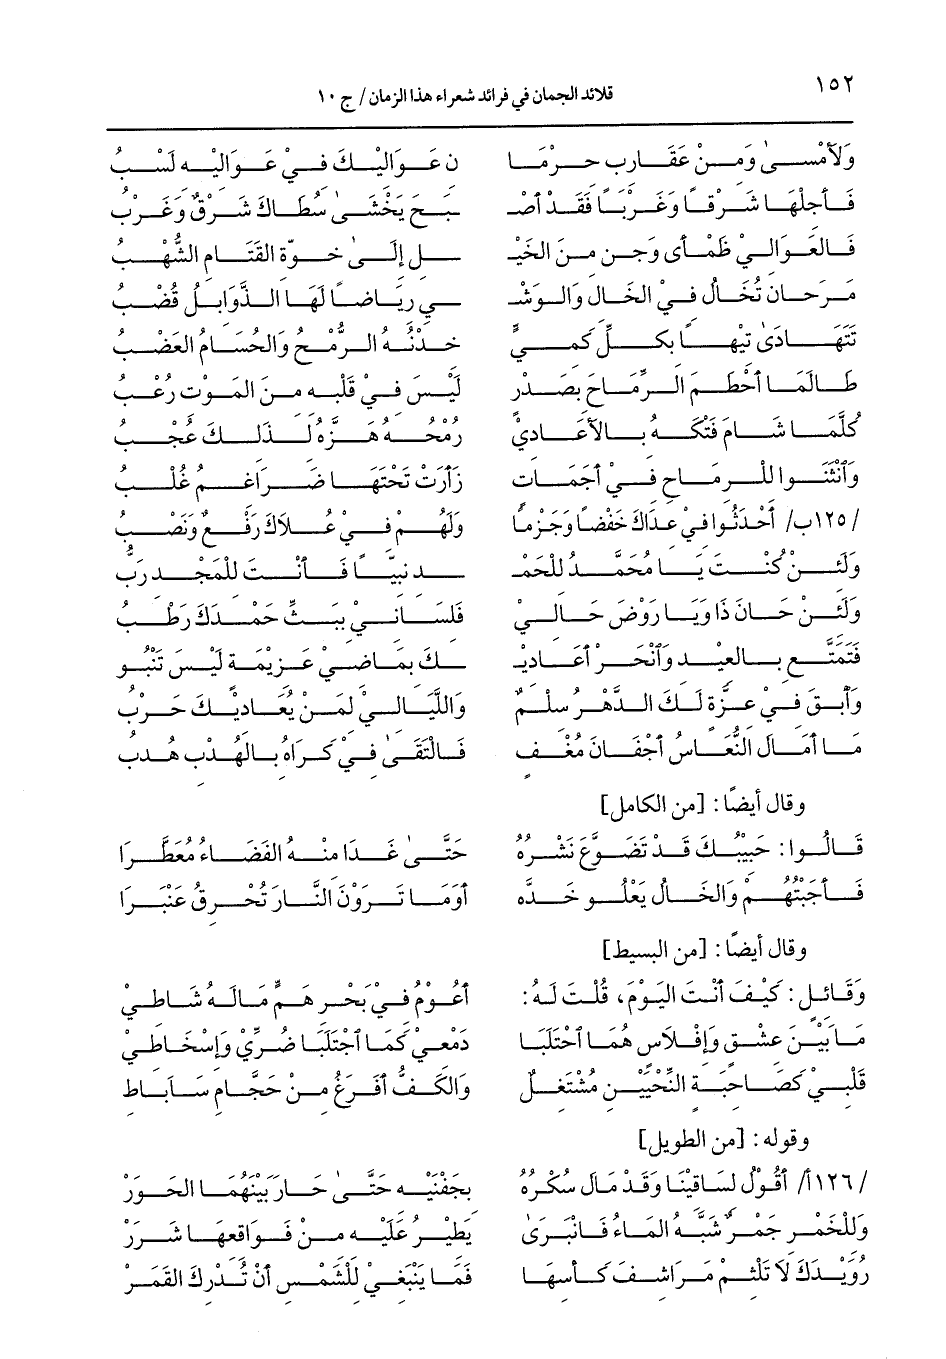 ١٥٢
قلائد الجمان في فرائد شعراء هذا الزمان / ج ١٠
وَلأَمْسَىٰ وَمِنْ عَقَارِبِ حِرْمَا نِ عَوَالِيْكَ فِيْ عَوَالِيْهِ لَسْبُ
فَأَجِلْهَا شَرْقاً وَغَرْبَاً فَقَدْ أَصْـ ـبَحَ يَخْشَىٰ سُطَاكَ شَرْقٌ وَغَرْبُ
فَالعَوَالِيْ ظَمْأَى وَجِنٍ مِنَ الخَيْـ ـلِ إِلَىٰ خَوَّةِ القَتَامِ الشُّهْبُ
مَرِحَانٍ تُخَالُ فِيْ الخَالِ وَالوَشْـ ـيِ رِيَاضَاً لَهَا الذَّوَابِلُ قُضْبُ
تَتَهَادَىٰ تِيْهَاً بِكُلِّ كَمِيٍّ خِدْنُهُ الرُّمْحُ وَالحُسَامُ العَضْبُ
طَالَمَا أَحْطَمَ الرِّمَاحَ بِصَدْرٍ لَيْسَ فِيْ قَلْبِهِ مِنَ المَوْتِ رُعْبُ
كُلَّمَا شَامَ فَتْكَهُ بِالأَعَادِيْ رُمْحُهُ هَزَّهُ لِذَلِكَ عُجْبُ
وَأَنْثَنَوا لِلرِمَاحِ فِيْ أَجَمَاتٍ زَأَرَتْ تَحْتَهَا ضَرَاغِمُ غُلْبُ
/١٢٥ب/ أَحْدَثُوا فِيْ عِدَاكَ خَفْضَاً وَجَزْمَاً وَلَهُمْ فِيْ عُلاَكَ رَفْعٌ وَنَصْبُ
وَلَئِنْ كُنْتَ يَا مُحَمَّدُ لِلحَمْـ ـدِ نَبِيَّاً فَأَنْتَ لِلْمَجْدِ رَبُّ
وَلَئِنْ حَانَ ذَا وِيَا رَوْضَ حَالِيْ فَلِسَانِيْ بِبَثِّ حَمْدِكَ رَطْبُ
فَتَمَتَّعْ بِالعِيْدِ وَأَنْحَرْ أَعَادِيْـ ـكَ بِمَاضِيْ عَزِيْمَةٍ لَيْسَ تَنْبُو
وَأَبْقَ فِيْ عِزَّةٍ لَكَ الدَّهْرُ سِلْمٌ وَاللَّيَالِيْ لِمَنْ يُعَادِيْكَ حَرْبُ
مَا أَمَالَ النُّعَاسُ أَجْفَانَ مُغْفٍ فَالْتَقَىٰ فِيْ كَرَاهُ بِالهُدْبِ هُدْبُ
وقال أيضاً: [من الكامل]
قَالُوا: حَبِيْبُكَ قَدْ تَضَوَّعَ نَشْرُهُ حَتَّىٰ غَدَا مِنْهُ الفَضَاءُ مُعَطَّرَا
فَأَجَبْتُهُمْ وَالخَالُ يَعْلُو خَدَّهُ أَوَمَا تَرَوْنَ النَّارَ تُحْرِقُ عَنْبَرَا
وقال أيضاً: [من البسيط]
وَقَائِلٍ: كَيْفَ أَنْتَ اليَوْمَ، قُلْتُ لَهُ: أَعُوْمُ فِيْ بَحْرِ هَمٍّ مَالَهُ شَاطِيْ
مَا بَيْنَ عِشْقٍ وَإِفْلاَسٍ هُمَا أَحْتَلَبَا دَمْعِيْ كَمَا أَجْتَلَبَا ضُرِّيْ وَإِسْخَاطِيْ
قَلْبِيْ كَصَاحِبَةِ النِّحْيَيْنِ مُشْتَغِلٌ وَالكَفُّ أَفْرَغُ مِنْ حَجَّامِ سَابَاطِ
وقوله: [من الطويل]
/١٢٦أ/ أَقُوْلُ لِسَاقِيْنَا وَقَدْ مَالَ سُكْرُهُ بِجَفْنَيْهِ حَتَّىٰ حَارَ بَيْنَهُمَا الحَوَرْ
وَلِلْخَمْرِ جَمْرٌ شَبَّهُ المَاءُ فَانْبَرَى يَطِيْرُ عَلَيْهِ مِنْ فَوَاقِعِهَا شَرَرْ
رُوَيْدَكَ لاَ تَلْثُمْ مَرَاشِفَ كَأْسِهَا فَمَا يَنْبَغِيْ لِلشَّمْسِ أَنْ تُدْرِكَ القَمَرْ